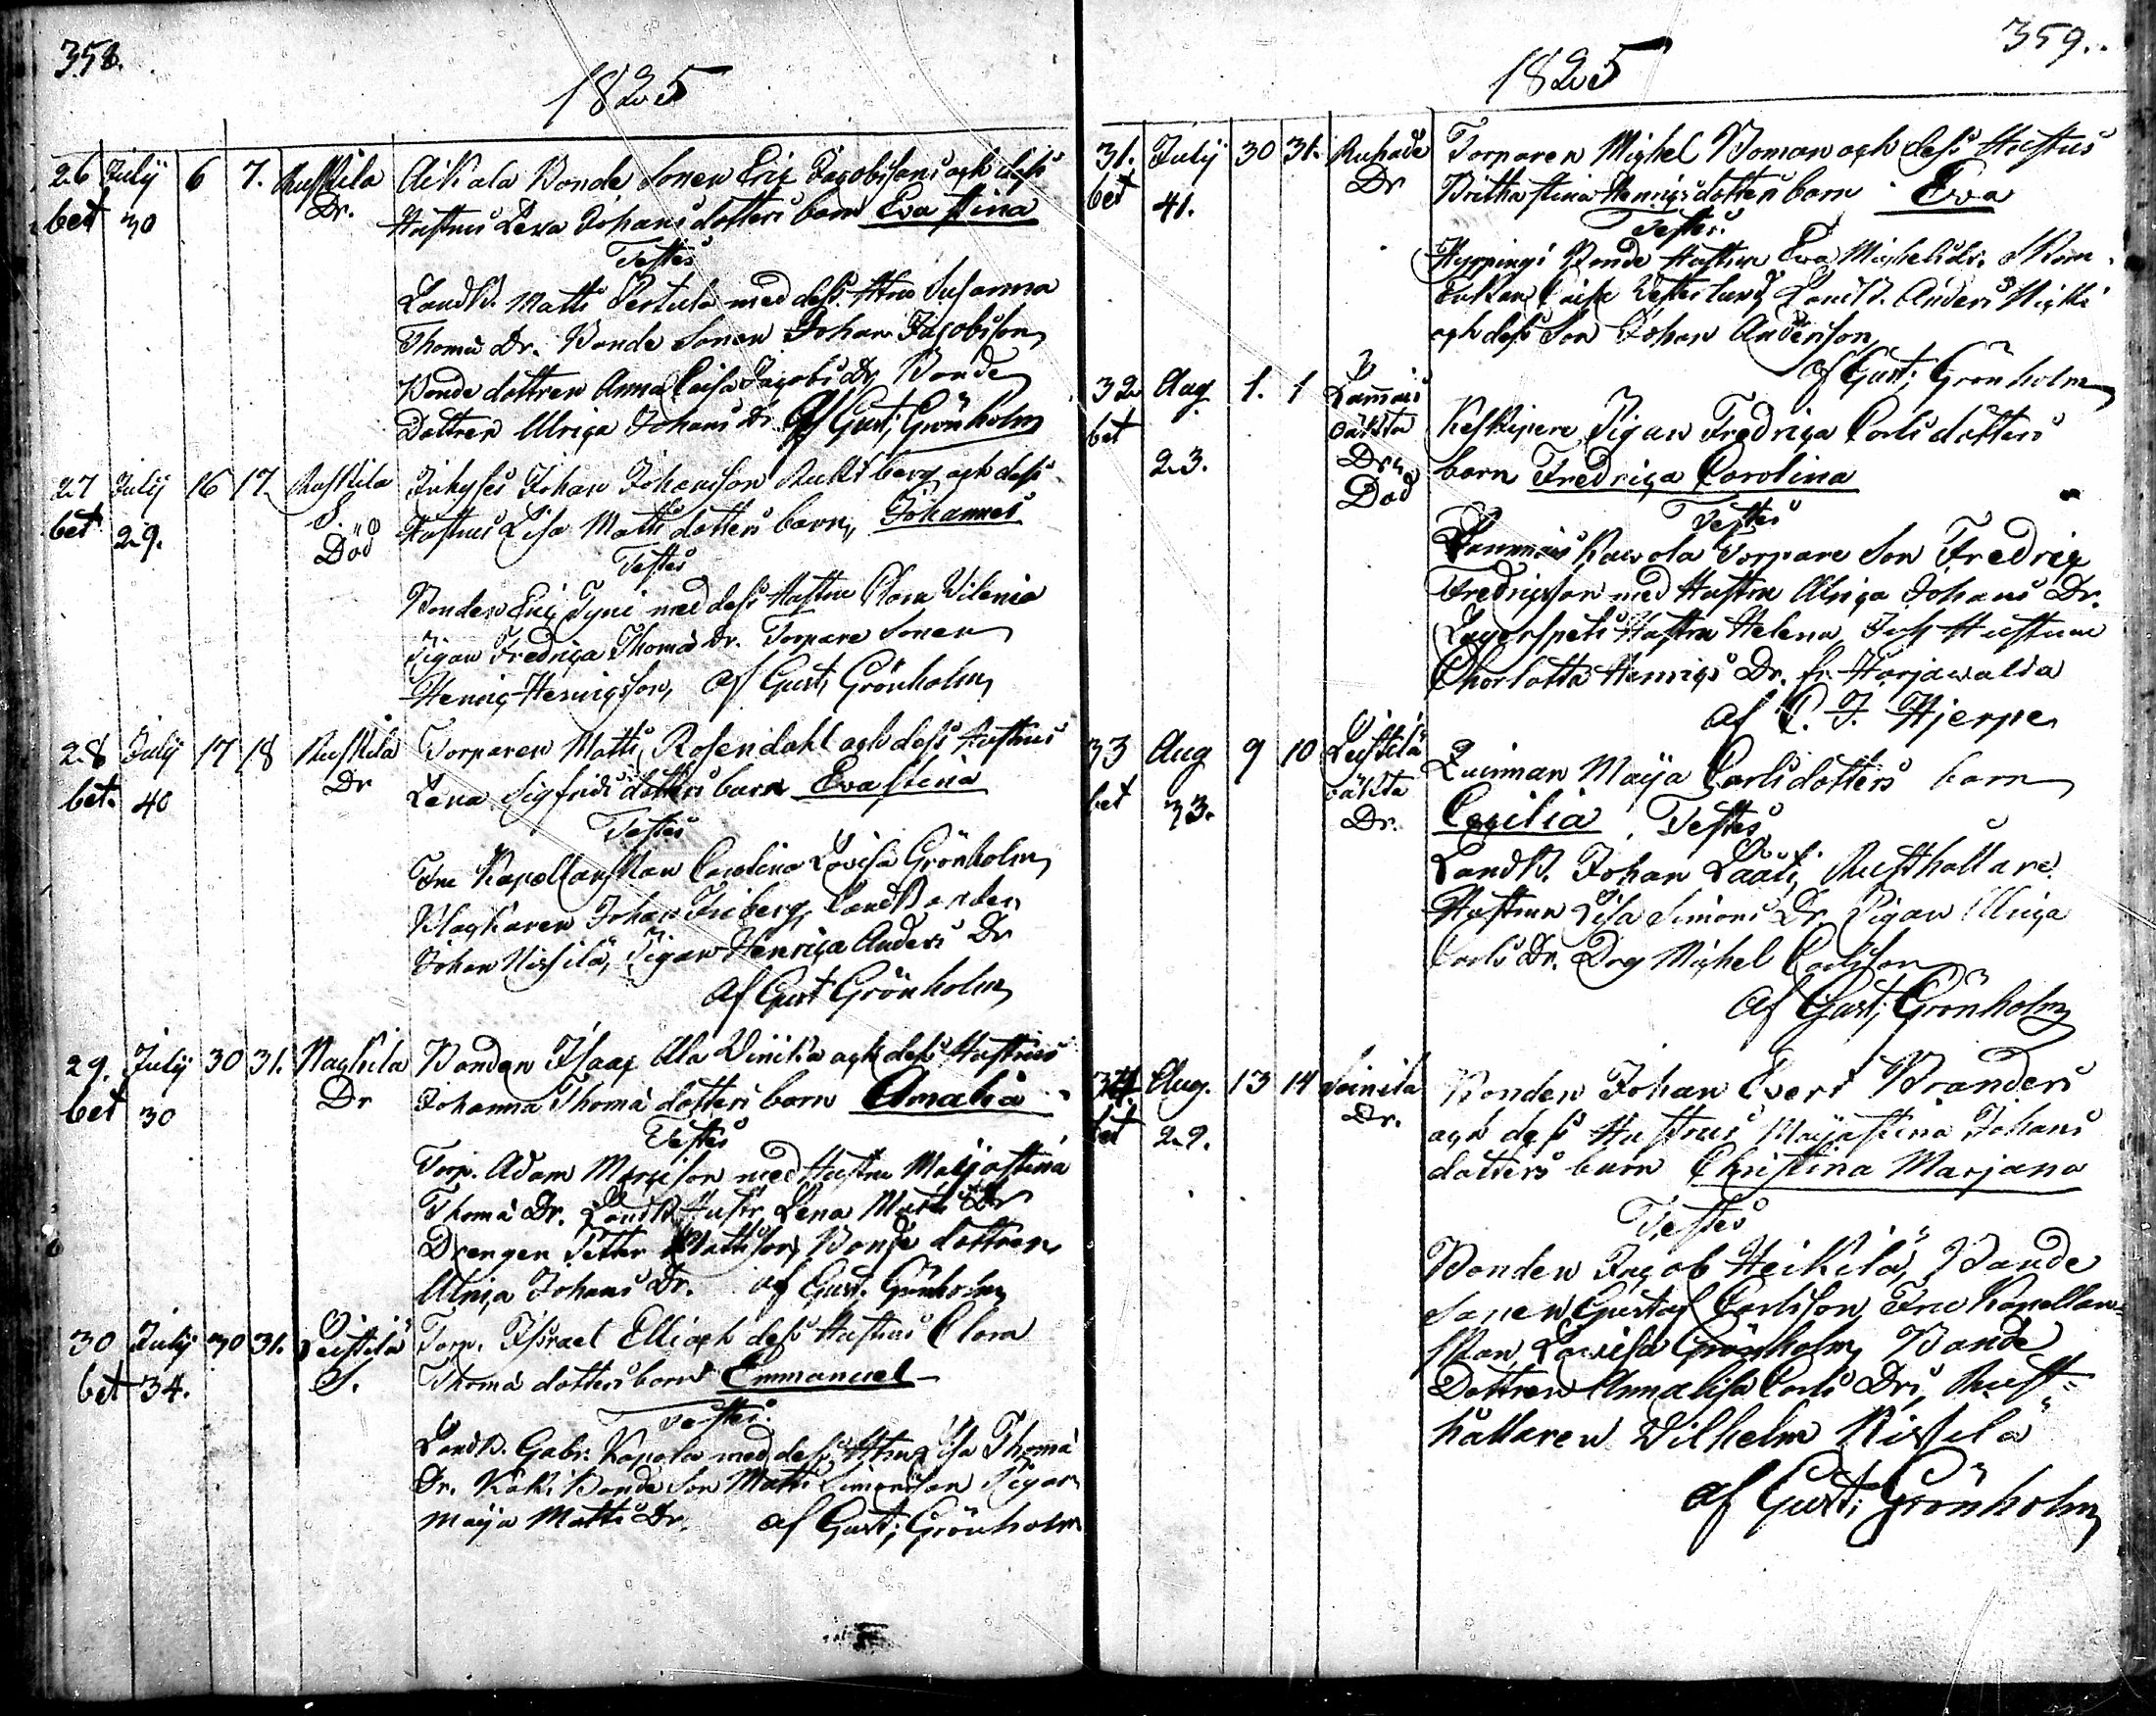 358.
1825
26 July 6 7. Ruskila Aikala Bonde Sonen Eric Jacobssons och dess
bet 30 Dr. Hustrus Lena Johans dotters barn Eva Stina
Testes
Landb. Matti Pertula med dess Htru Susanna
Thoma Dr. Bonde Sonen Johan Jacobsson
Bonde dottren Anna Caisa Jacobs Dr Bonde
Dottren Ulrica Johans Dr. Af Gust; Grönholm
27 July 16 17. Ruskila Johan Johansson och dess
bet 29. S. Död Hustrus Lisa Matts dotters barn, Johannes
Testes
Bonden Eric Tyni med dess Hustru Clara
Pigan Fredrica Thoma Dr. Torpare Sonen
Henric Henricsson, af Gust; Grönholm
28 July 17 18 Ruskila Torparen Matts Rosendahl och dess Hustrus
bet. 40 Dr Lena Sigfrids dotters barn Eva Stina
Testes
Fru Kapellanskan Carolina Lovisa Grönholm
Klockaren Johan Friberg, Landbonden
Johan Nissilä, Pigan Henrica Anders Dr
af Gust Grönholm
29. July 30 31. Bonden Isaac Ala Vinika och dess Hustrus
bet 30 Dr Johanna Thoma dotters barn Amalia
Testes
Torp. Adam med Hustru Maija Stina
Thoma Dr. Landb Hustr. Lena Matts Dr
Drengen Petter Mattsson, Bonde dottren
Ulrica Johans Dr. af Gust. Grönholm
30 July 30 31. Leistilä Torp. Israel Elli och dess Hustrus Clara
bet 34. S. Thoma dotters barn Emmanuel
Testes.
Landb. Gabr. Kapola med dess Htru Lisa Thoma
Dr. Bonde Son Matts Simonsson Pigan
Maija Matts Dr. af Gust; Grönholm
359.
1825
31. July 30 31. Ruhade Torparen Michel Boman och dess Hustrus
bet 41. Dr Britha Stina Henrics dotters barn Eva
Testes.
Hyppingi Bonde Hustru Eva Michels Dr.
Caisa Landb. Anders
och dess Son Johan Andersson
af Gust; Grönholm
32 Aug 1. 1 Lammais Keskipere Pigan Fredrica Carls dotters
bet 23. oäkta Dr. Död barn Fredrica Carolina
Testes
Lammais Torpare Son Fredric
Fredricsson med Hustru Ulrica Johans Dr.
Lagerspets Hustru Helena, Hustrun
Charlotta Henrics Dr. fr. Harjawalda
af C. J. Hjerpe
33 Aug 9 10 Leistilä Quinnan Maija Carls dotters barn
bet 33. oäkta Dr. Cecilia. Testes
Landb. Johan Laati, Rusthållare
Hustrun Lisa Simons Dr. Pigan Ulrica
Carls Dr. Drg Michel Carlsson
af Gust; Grönholm
34. Aug. 13 14 Soinila Bonden Johan Evert Branders
bet 29. Dr. och dess Hustrus Maija Stina Johans
dotters barn Christina Marjana
Testes
Bonden Jacob Heikilä, Bonde
Sonen Gustaf Carlsson, Fru Kapellan=
skan Lovisa Grönholm, Bonde
Dottren Anna Lisa Carls Dr, Rust=
hållaren Wilhelm Nissilä
af Gust; Grönholm